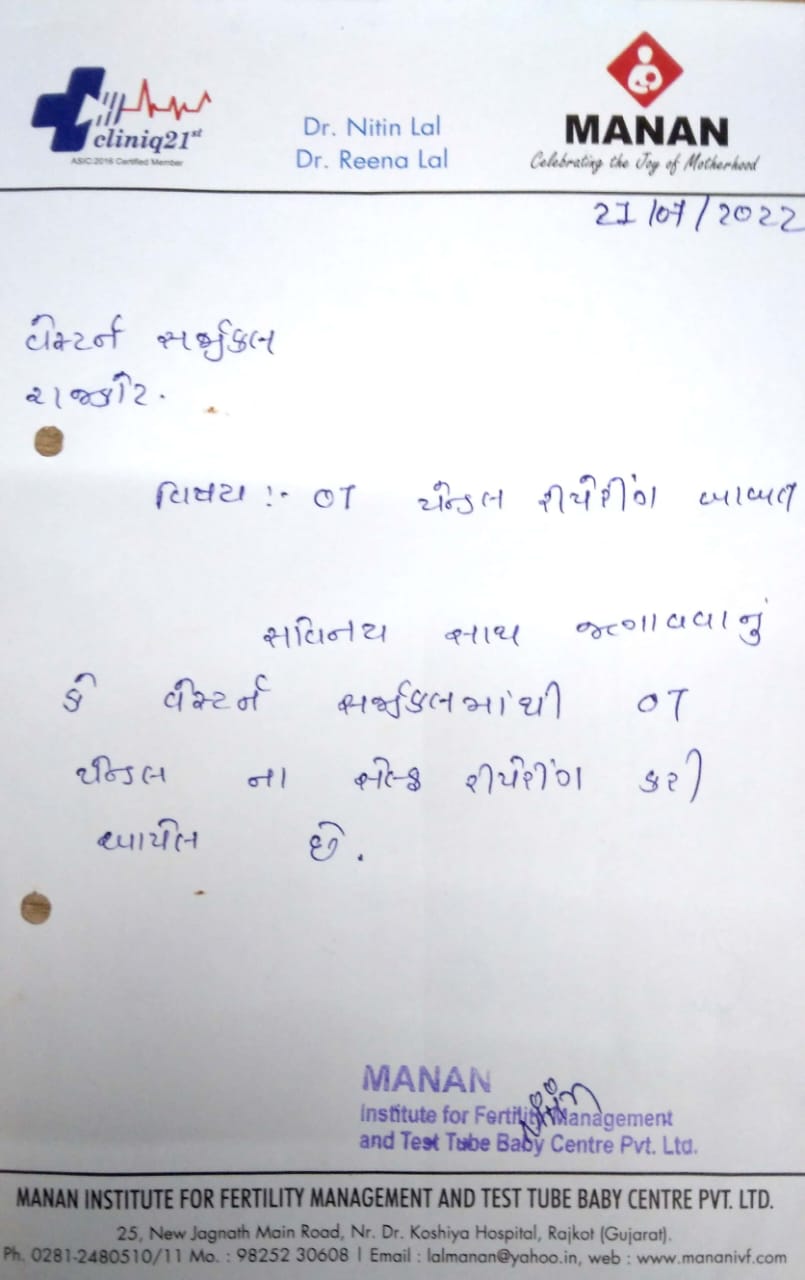 cliniq21st
ASIC:2016 Certified Member
Dr. Nitin Lal
Dr. Reena Lal
MANAN
Celebrating the Joy of Motherhood
21/07/2022
વેસ્ટર્ન સર્જીકલ
રાજકોટ.
વિષય :- OT પેન્ડલ રીપેરીંગ બાબત
સવિનય સાથ જણાવવાનું
કે વેસ્ટર્ન સર્જીકલમાંથી OT
પેન્ડલ ના સેલ્ફ રીપેરીંગ કરી
આપેલ છે.
MANAN
Institute for Fertility Management
and Test Tube Baby Centre Pvt. Ltd.
MANAN INSTITUTE FOR FERTILITY MANAGEMENT AND TEST TUBE BABY CENTRE PVT. LTD.
25, New Jagnath Main Road, Nr. Dr. Koshiya Hospital, Rajkot (Gujarat).
Ph. 0281-2480510/11 Mo. : 98252 30608 | Email : lalmanan@yahoo.in, web : www.mananivf.com